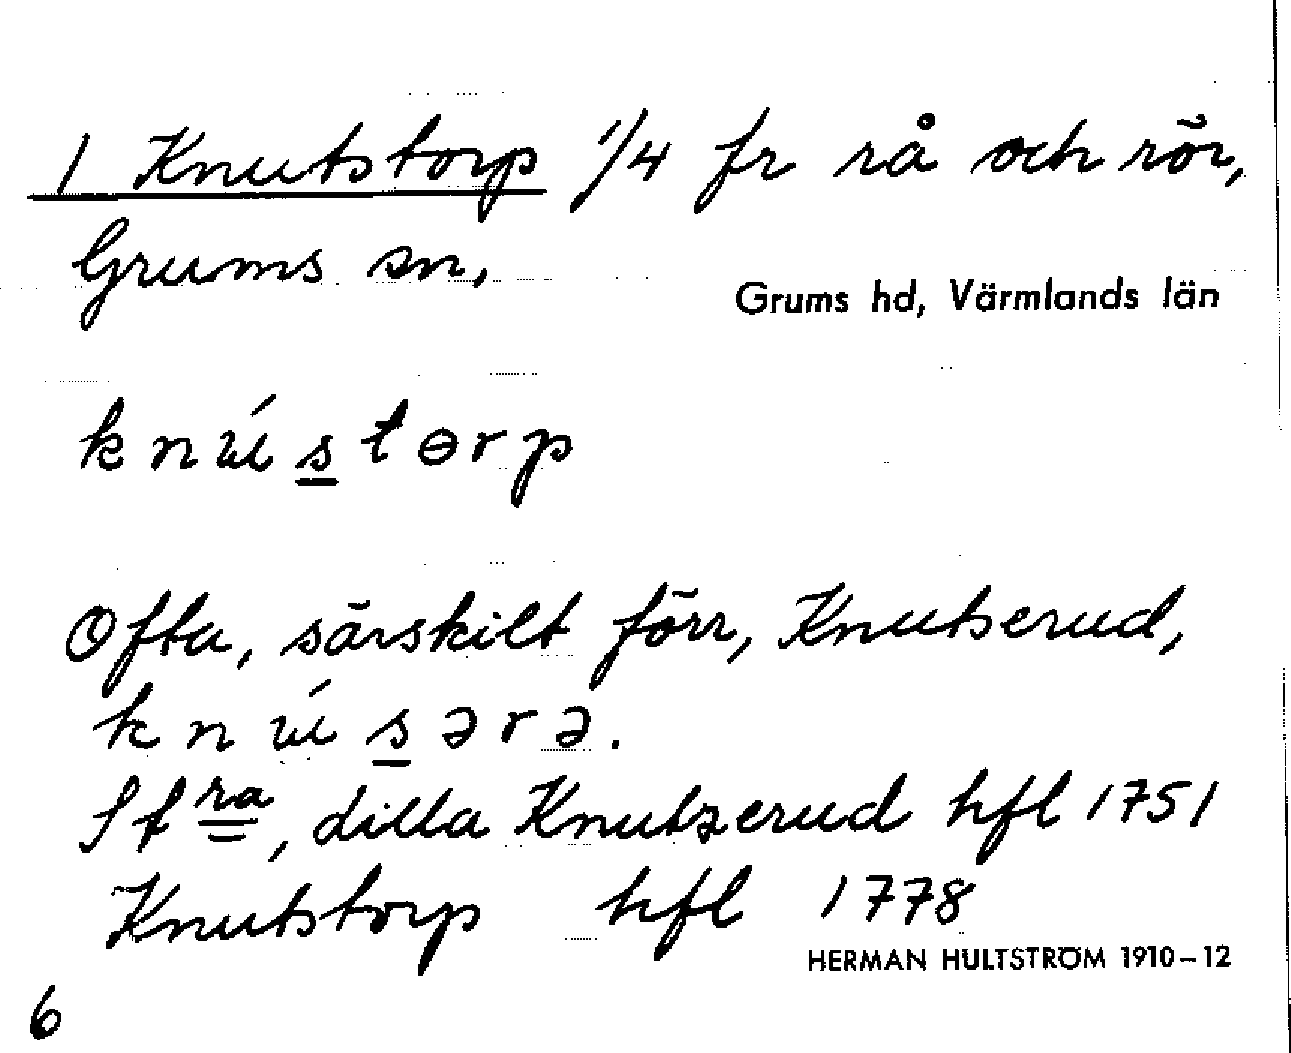 1 Knutstorp 1/4 fr rå och rör,
Grums sn,
Grums hd, Värmlands län
knústɵrp
Ofta, särskilt förr, Knutserud,
knúsərə.
St ra, dilla Knutzerud hfl 1751
Knutstorp hfl 1778
HERMAN HULTSTRÖM 1910–12
6